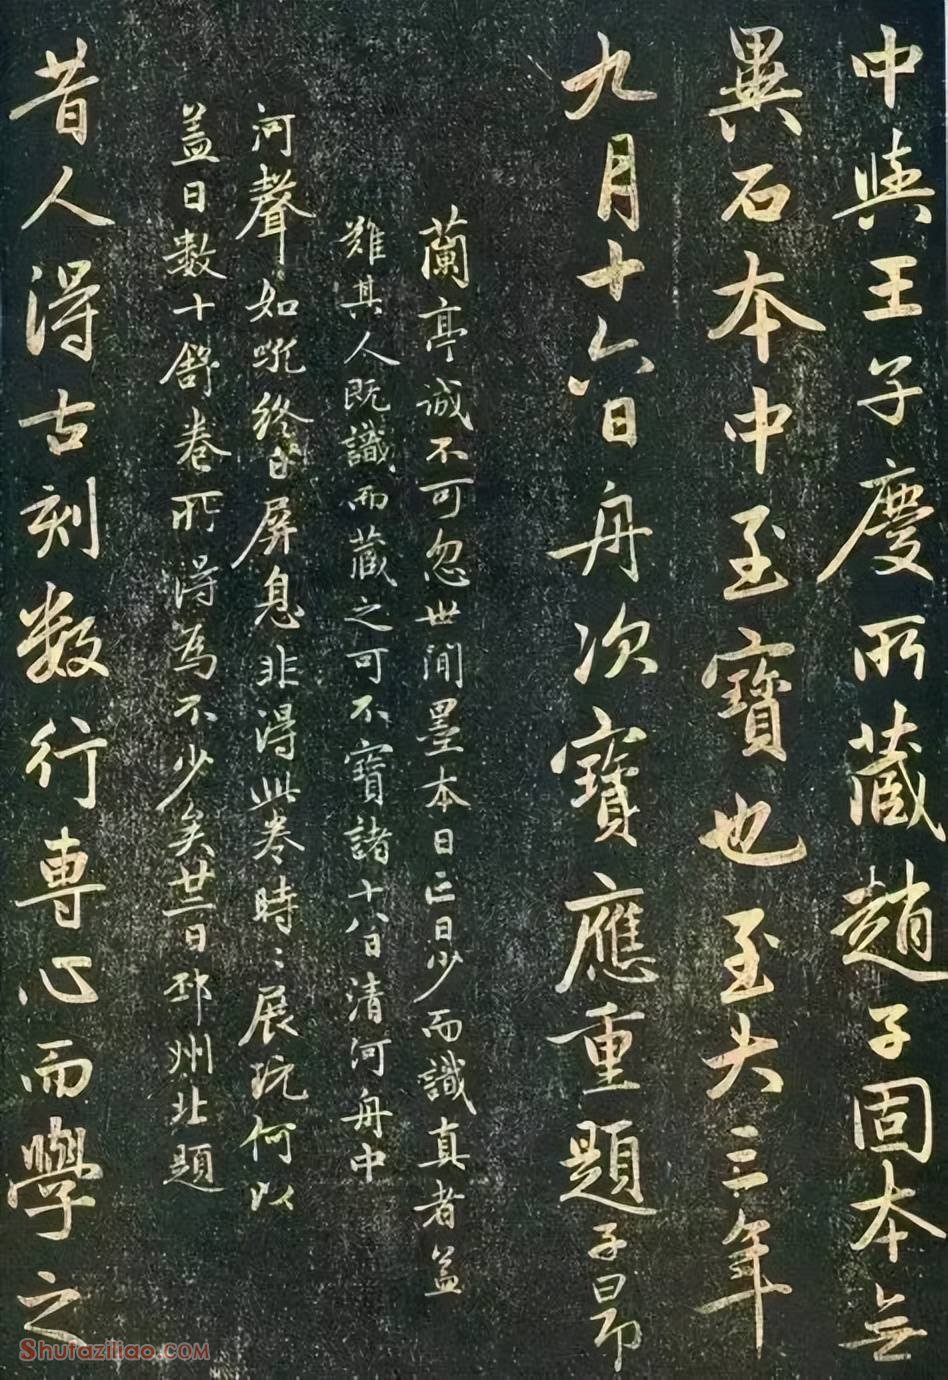 中與王子慶所藏趙子固本無
異石本中至寶也至大三年
九月十六日舟次寶應重題子昂
蘭亭誠不可忽世間墨本日亡日少而識真者益
難其人既識而藏之可不寶諸十八日清河舟中
河聲如吼終日屏息非得此卷時〻展玩何以
盖日數十舒卷所得為不少矣廿二日邳州北題
昔人得古刻数行專心而學之
Shufaziliao.com